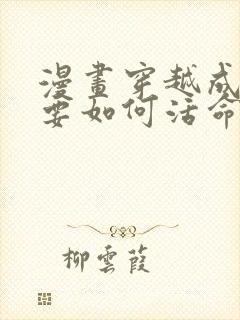 漫畫穿越成
要如何活命
柳雲葭